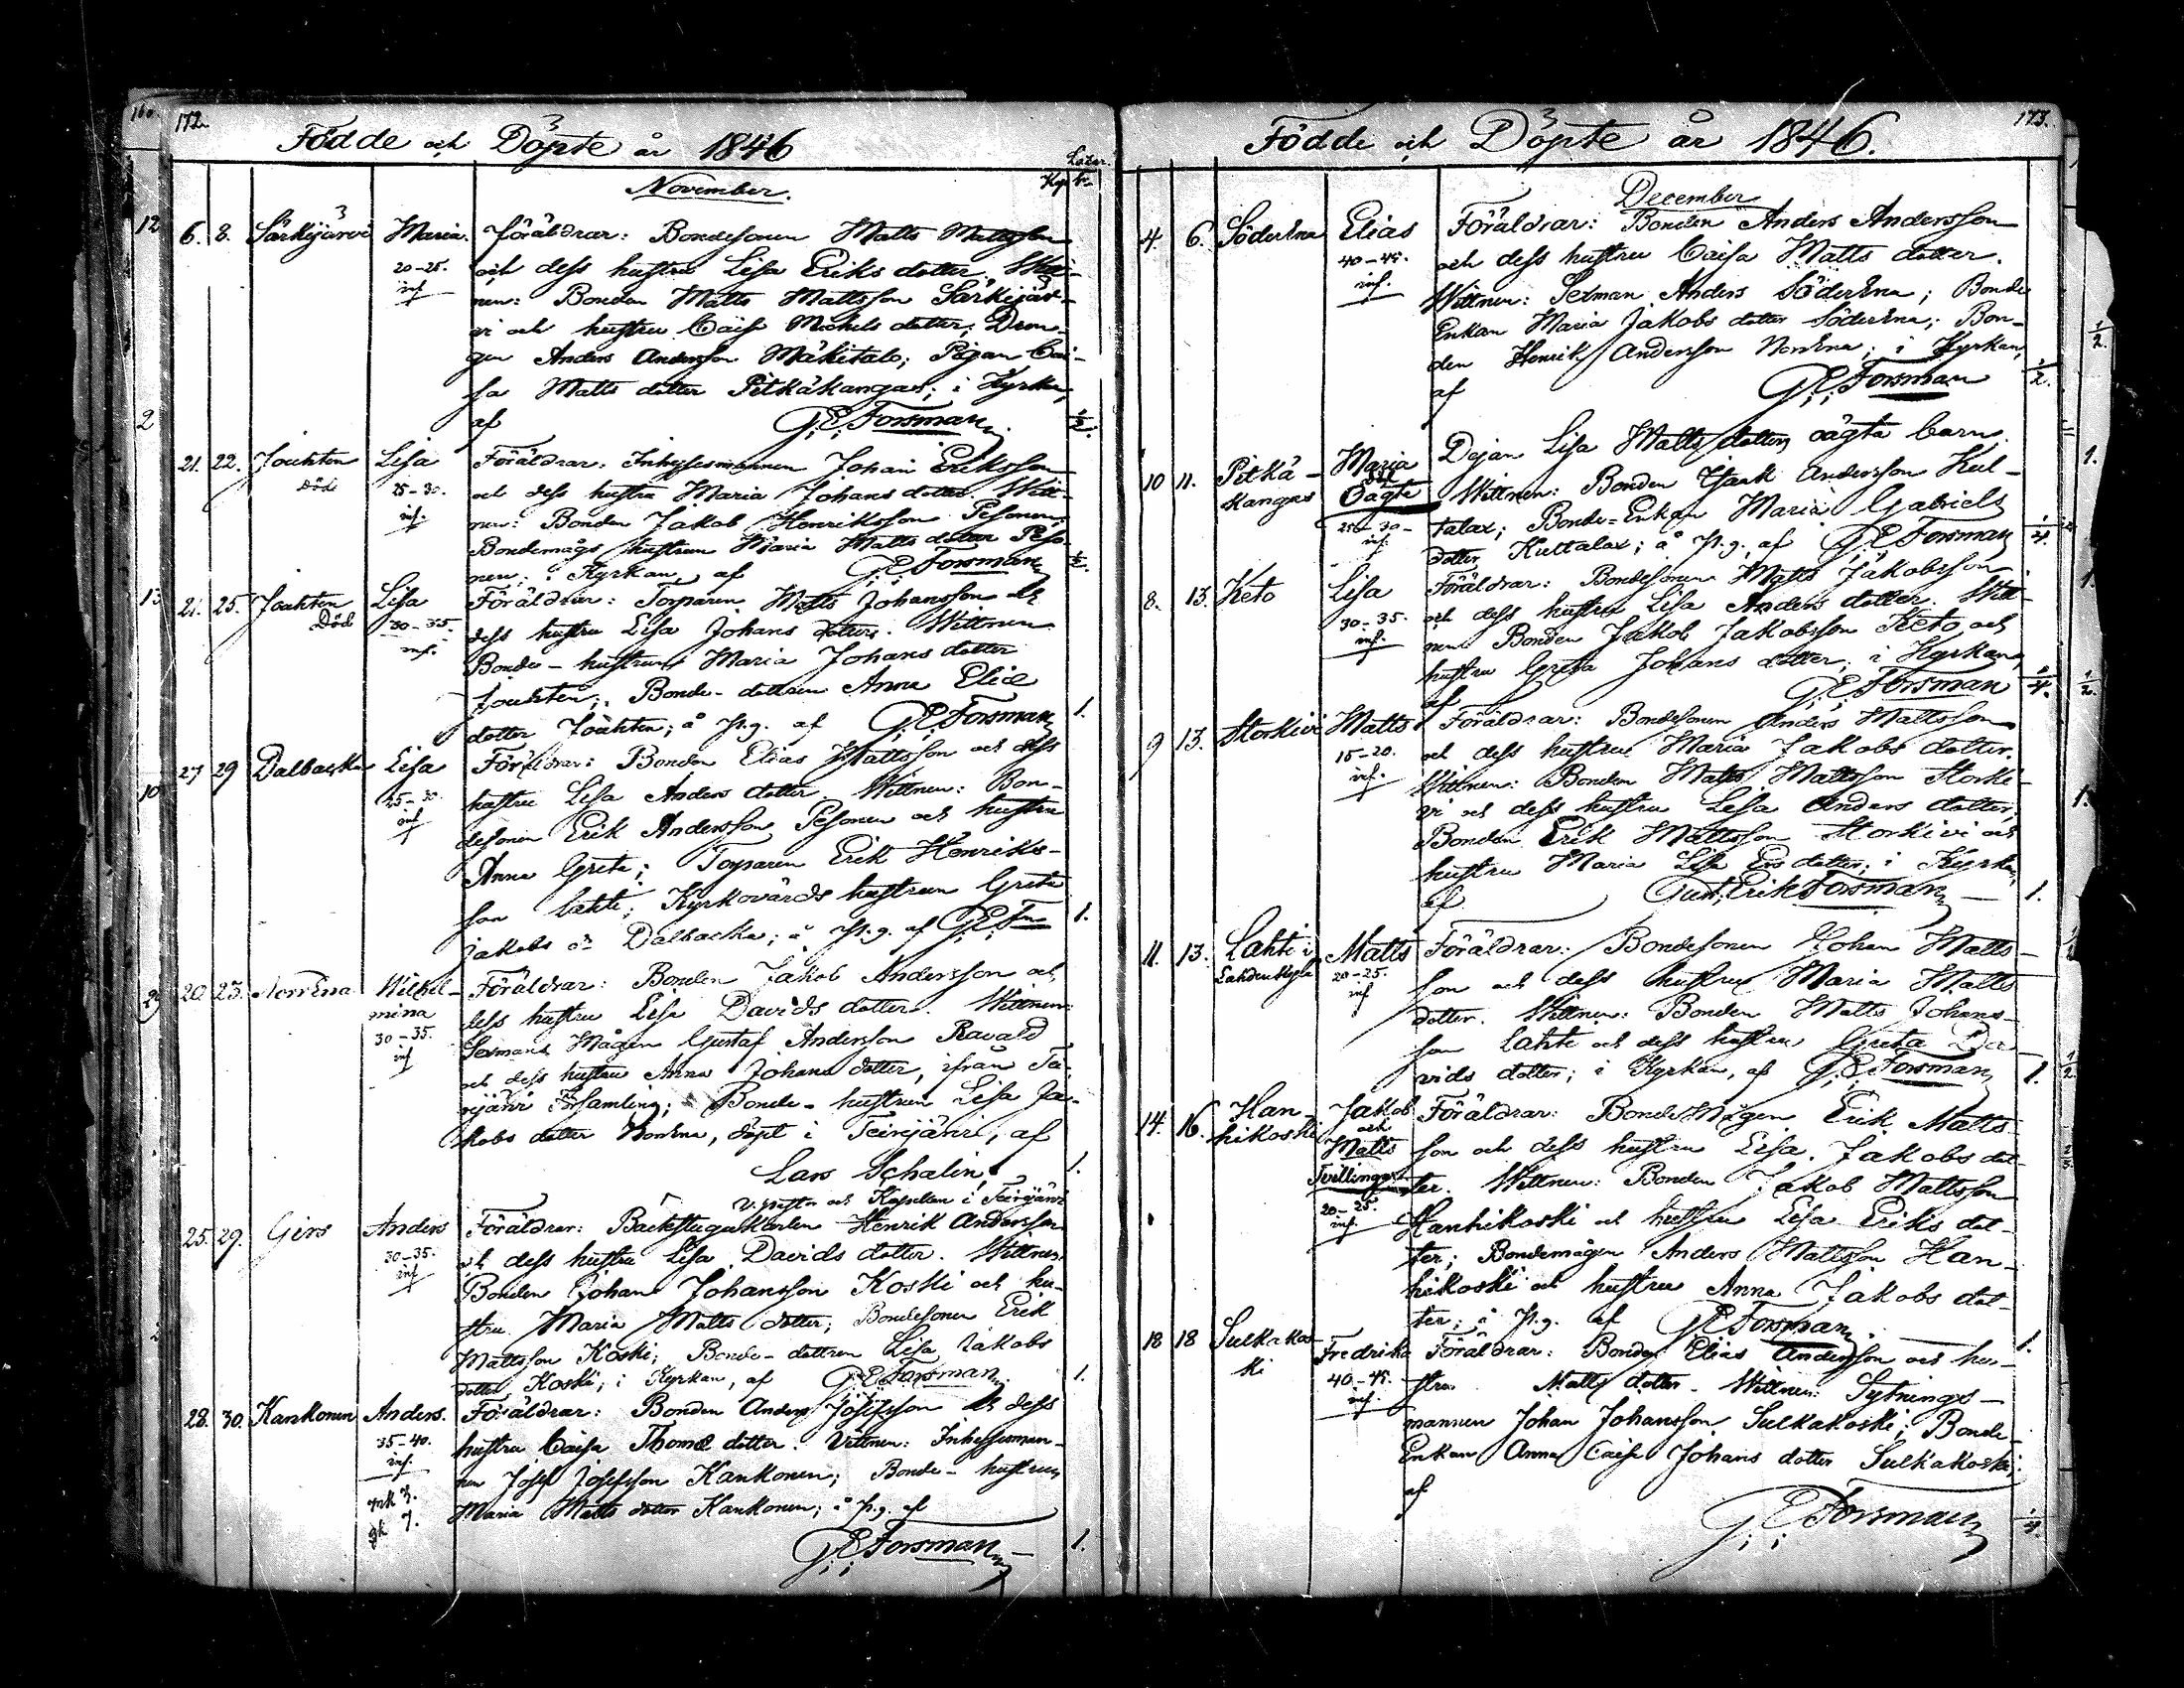 172.
Födde och Döpte år 1846
November.
6. 8. Särkijärvi Maria. Föräldrar: Bondesonen Matts Mattsson
20-25. och dess hustru Lisa Eriks dotter. Witt-
inf. nen: Bonden Matts Mattsson Särkijär-
vi och hustru Caisa Michels dotter; Dren-
gen Anders Andersson Mäkitalo; Pigan Cai-
sa Matts dotter Pitkäkangas; i Kyrkan,
af G: E: Forsman 1/2.
21. 22. Jouhten Lisa Föräldrar: Inhysesmannen Johan Eriksson
Död 25-30. och dess hustru Maria Johans dotter. Witt-
inf. nen: Bonden Jakob Henriksson Pesonen;
Bondemågs hustrun Maria Matts dotter Peso-
nen; i Kyrkan, af G: E: Forsman 1/2.
21. 25. Jouhten Lisa Föräldrar: Torparen Matts Johansson och
Död 30-35. dess hustru Lisa Johans dotter. Wittnen
inf. Bonde-hustrun Maria Johans dotter
Jouhten; Bonde-dottren Anna Eliæ
dotter Jouhten; å P.g. af G: E: Forsman 1.
27 29 Dalbacka Lisa Föräldrar: Bonden Elias Mattsson och dess
25-30. hustru Lisa Anders dotter. Wittnen: Bon-
inf desonen Erik Andersson Pesonen och hustru
Anna Greta; Torparen Erik Henriks-
son Lahti; Kyrkovärds hustrun Greta
Jakobs dr Dalbacka; å P.g. af G: E: Fn 1.
20. 23. Norrena Wilhel- Föräldrar: Bonden Jakob Andersson och
mina dess hustru Lisa Davids dotter. Wittnen:
30-35. Sexmans Mågen Gustaf Andersson Ravald
inf och dess hustru Anna Johans dotter, ifrån Te-
rijärvi Församling; Bonde-hustrun Lisa Ja-
kobs dotter Norrena, döpt i Teirijärvi, af
Lars Schalin, 1.
V. pastor och Kapellan i Teirijärvi
25. 29. Girs Anders Föräldrar: Backstugukarlen Henrik Andersson
30-35. och dess hustru Lisa Davids dotter. Wittnen:
inf Bonden Johan Johansson Koski och hu-
stru Maria Matts dotter; Bondesonen Erik
Mattsson Koski; Bonde-dottren Lisa Jakobs
dotter Koski; i Kyrkan, af G: E: Forsman 1.
28. 30. Kankonen Anders. Föräldrar: Bonden Anders Josefsson och dess
35-40. hustru Caisa Thomæ dotter. Vittnen: Inhysesman-
inf. nen Josef Josefsson Kankonen; Bonde-hustrun
mk 3. Maria Matts dotter Kankonen; å P.g af
gk 7.
G: E: Forsman 1.
173.
Födde och Döpte år 1846.
December
4. 6. Söderena Elias Föräldrar: Bonden Anders Andersson
40-45. och dess hustru Caisa Matts dotter.
inf. Wittnen: Sexman Anders Söderena; Bonde
Enkan Maria Jakobs dotter Söderena; Bon-
den Henrik Andersson Norrena; i Kyrkan,
af G: E: Forsman 1/2.
10 11. Pitkä- Maria Pigan Lisa Matts dotters oägta barn.
kangas Oägta Wittnen: Bonden Isaak Andersson Kul-
25-30- talax; Bonde-Enkan Maria Gabriels
inf. dotter Kuttalax; å P.g. af G: E: Forsman 1/4.
8. 13. Keto Lisa Föräldrar: Bondesonen Matts Jakobsson
30-35. och dess hustru Lisa Anders dotter. Witt-
inf. nen Bonden Jakob Jakobsson Keto och
hustru Greta Johans dotter; i Kyrkan,
af G: E: Forsman 1/4.
9 13. Storkivi Matts Föräldrar: Bondesonen Anders Mattsson
15-20. och dess hustru Maria Jakobs dotter.
inf. Wittnen: Bonden Matts Mattsson Storki-
vi och dess hustru Lisa Anders dotter;
Bonden Erik Mattsson Storkivi och
hustru Maria Lisa Ers dotter; i Kyrkan,
af Gust. Erik Forsman 1.
11. 13. Lahti i Matts Föräldrar: Bondesonen Johan Matts-
Lahdenkylä 20-25. son och dess hustru Maria Matts
inf dotter. Wittnen: Bonden Matts Johans-
son Lahti och dess hustru Greta Da-
vids dotter; i Kyrkan, af G: E: Forsman 1.
14. 16. Han- Jakob Föräldrar: Bonde Mågen Erik Matts-
hikoski och Matts son och dess hustru Lisa Jakobs dot-
Tvillingar ter. Wittnen: Bonden Jakob Mattsson
20-25. inf. Hanhikoski och hustru Lisa Eriks dot-
ter; Bondemågen Anders Mattsson Han-
hikoski och hustru Anna Jakobs dot-
ter; å P.g. af G: E: Forsman. 1.
18 18 Sulkakos- Fredrika Föräldrar: Bonden Elias Andersson och hu-
ki 40-45. stru Matts dotter. Wittnen: Sytnings-
inf. mannen Johan Johansson Sulkakoski; Bonde-
Enkan Anna Caisa Johans dotter Sulkakoski;
af
G: E: Forsman 1/4